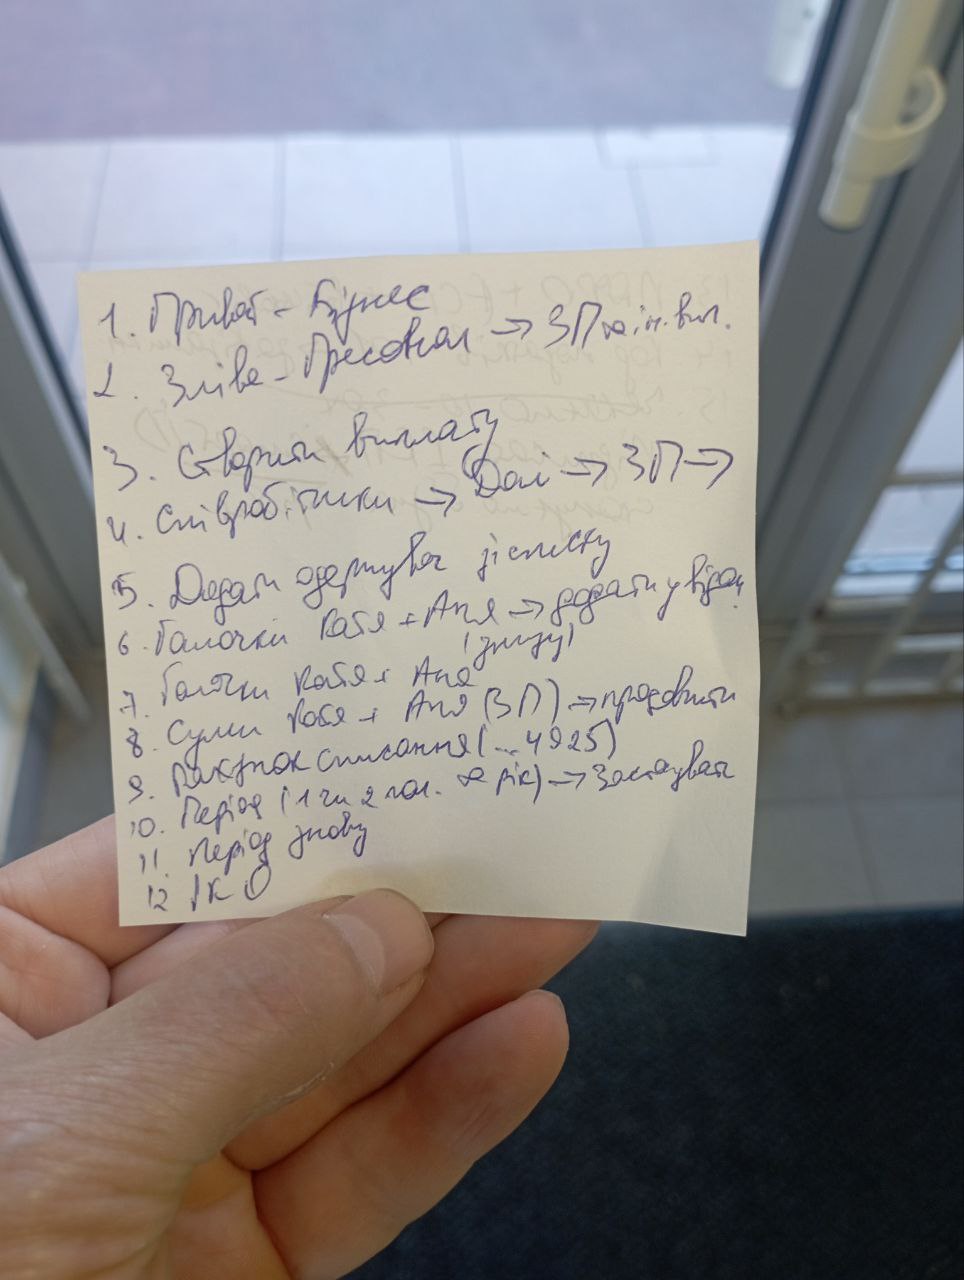 1. Приват - Бізнес
2. Зліва - Персонал → ЗП та ін. вип.
3. Створити виплату
4. Співробітники → Далі → ЗП →
5. Додати одержувач зі списку
6. Галочки Катя + Аня → додати у відом.
(знизу)
7. Галочки Катя + Аня
8. Суми Катя + Аня (ЗП) → продовжити
9. Рахунок списання (... 4925)
10. Період (1 чи 2 пол. та рік) → Застосувати
11. Період знову
12